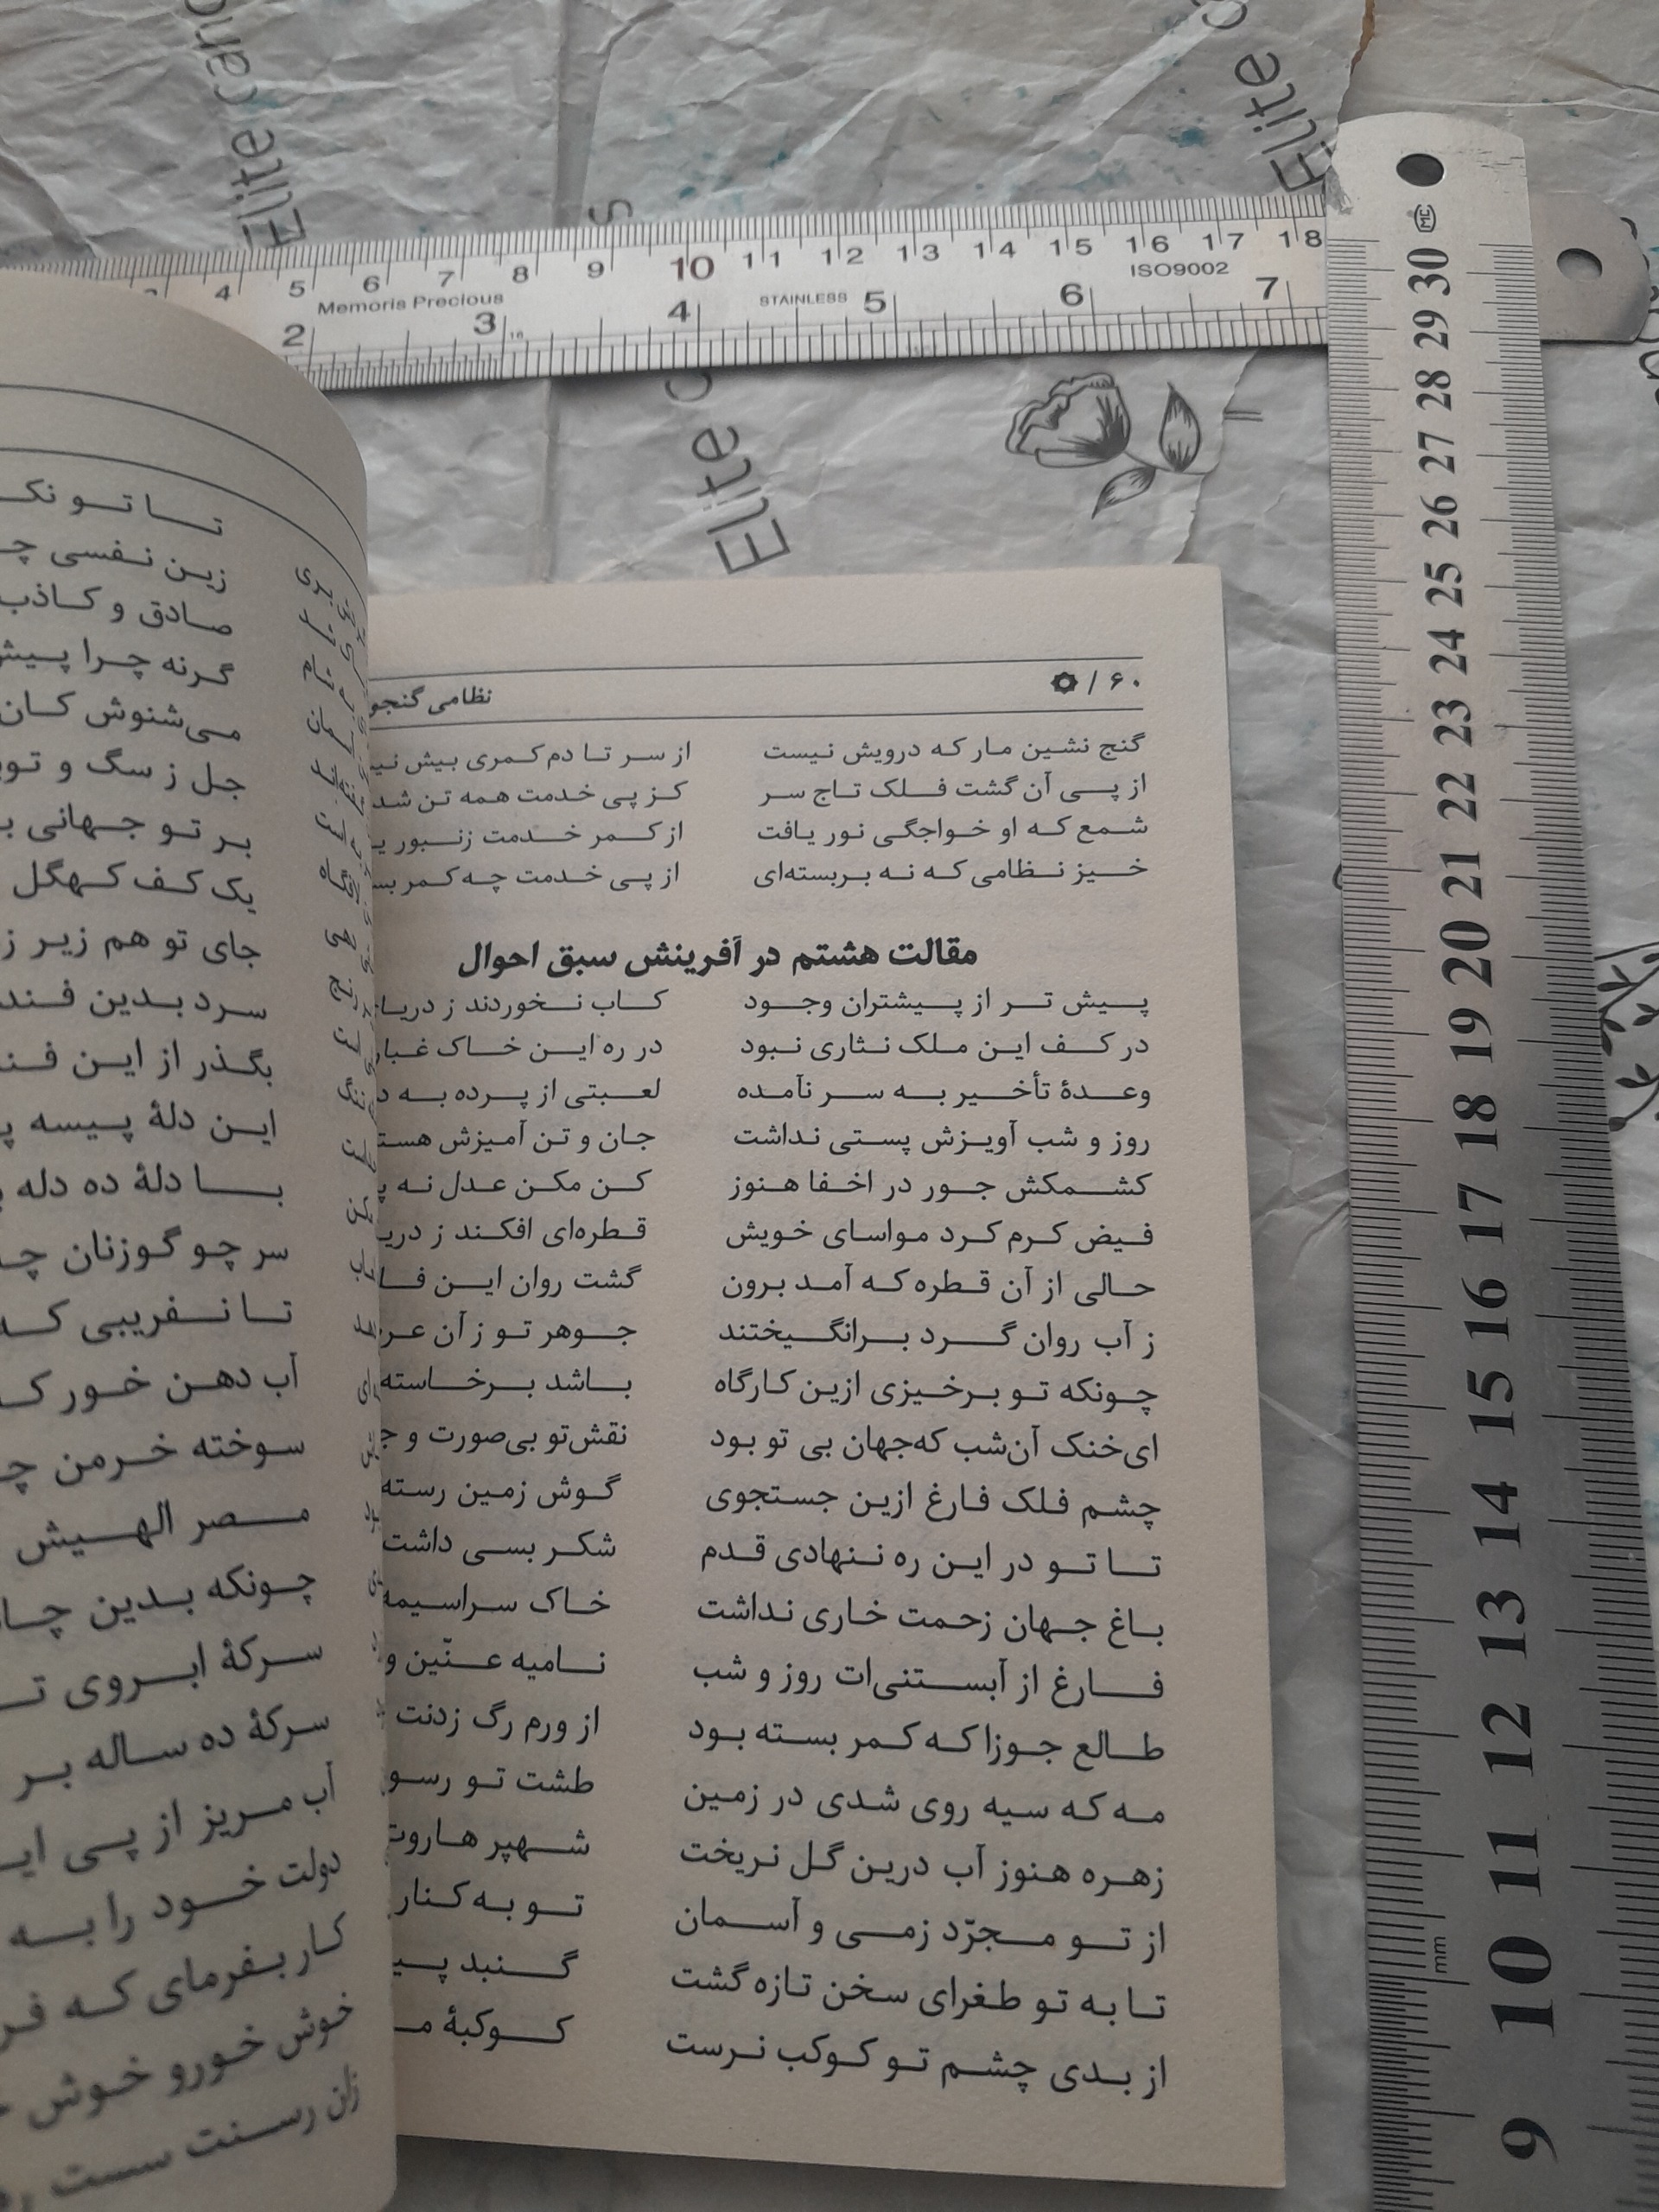 Elite
Elite
Elite
4 5 6 7 8 9 10 11 12 13 14 15 16 17 18
Memoris Precious STAINLESS ISO9002
2 3 4 5 6 7
MC
30 29 28 27 26 25 24 23 22 21 20 19 18 17 16 15 14 13 12 11 10 9
mm
۶۰ /
نظامی
گنج نشین مار که درویش نیست از سر تا دم کمری بیش
از پی آن گشت فلک تاج سر کز پی خدمت همه تن
شمع که او خواجگی نور یافت از کمر خدمت زنبور
خیز نظامی که نه بربسته‌ای از پی خدمت چه کمر
مقالت هشتم در آفرینش سبق احوال
پیش تر از پیشتران وجود کاب نخوردند ز دریا
در کف این ملک نثاری نبود در ره این خاک
وعدۀ تأخیر به سر نآمده لعبتی از پرده به
روز و شب آویزش پستی نداشت جان و تن آمیزش
کشمکش جور در اخفا هنوز کن مکن عدل نه
فیض کرم کرد مواسای خویش قطره‌ای افکند ز
حالی از آن قطره که آمد برون گشت روان این
ز آب روان گرد برانگیختند جوهر تو ز آن
چونکه تو برخیزی ازین کارگاه باشد برخاسته
ای‌خنک آن‌شب که‌جهان بی تو بود نقش‌تو بی‌صورت و
چشم فلک فارغ ازین جستجوی گوش زمین رسته
تا تو در این ره ننهادی قدم شکر بسی داشت
باغ جهان زحمت خاری نداشت خاک سراسیمه
فارغ از آبستنی‌ات روز و شب نامیه عنّین و
طالع جوزا که کمر بسته بود از ورم رگ زدنت
مه که سیه روی شدی در زمین طشت تو
زهره هنوز آب درین گل نریخت شهپر هاروت
از تو مجرّد زمی و آسمان تو به کنار
تا به تو طغرای سخن تازه گشت گنبد
از بدی چشم تو کوکب نرست کوکبۀ
تا تو
زین نفسی
صادق و کاذب
گرنه چرا
می‌شنوش کان
جل ز سگ و
بر تو جهانی
یک کف کهگل
جای تو هم زیر
سرد بدین
بگذر از این
این دلۀ پیسه
با دلۀ ده دله
سر چو گوزنان
تا نفریبی
آب دهن خور
سوخته خرمن
مصر الهیش
چونکه بدین
سرکۀ ابروی
سرکۀ ده ساله بر
آب مریز از پی
دولت خود را به
کار بفرمای که
خوش خورو خوش
زان رسنت سست